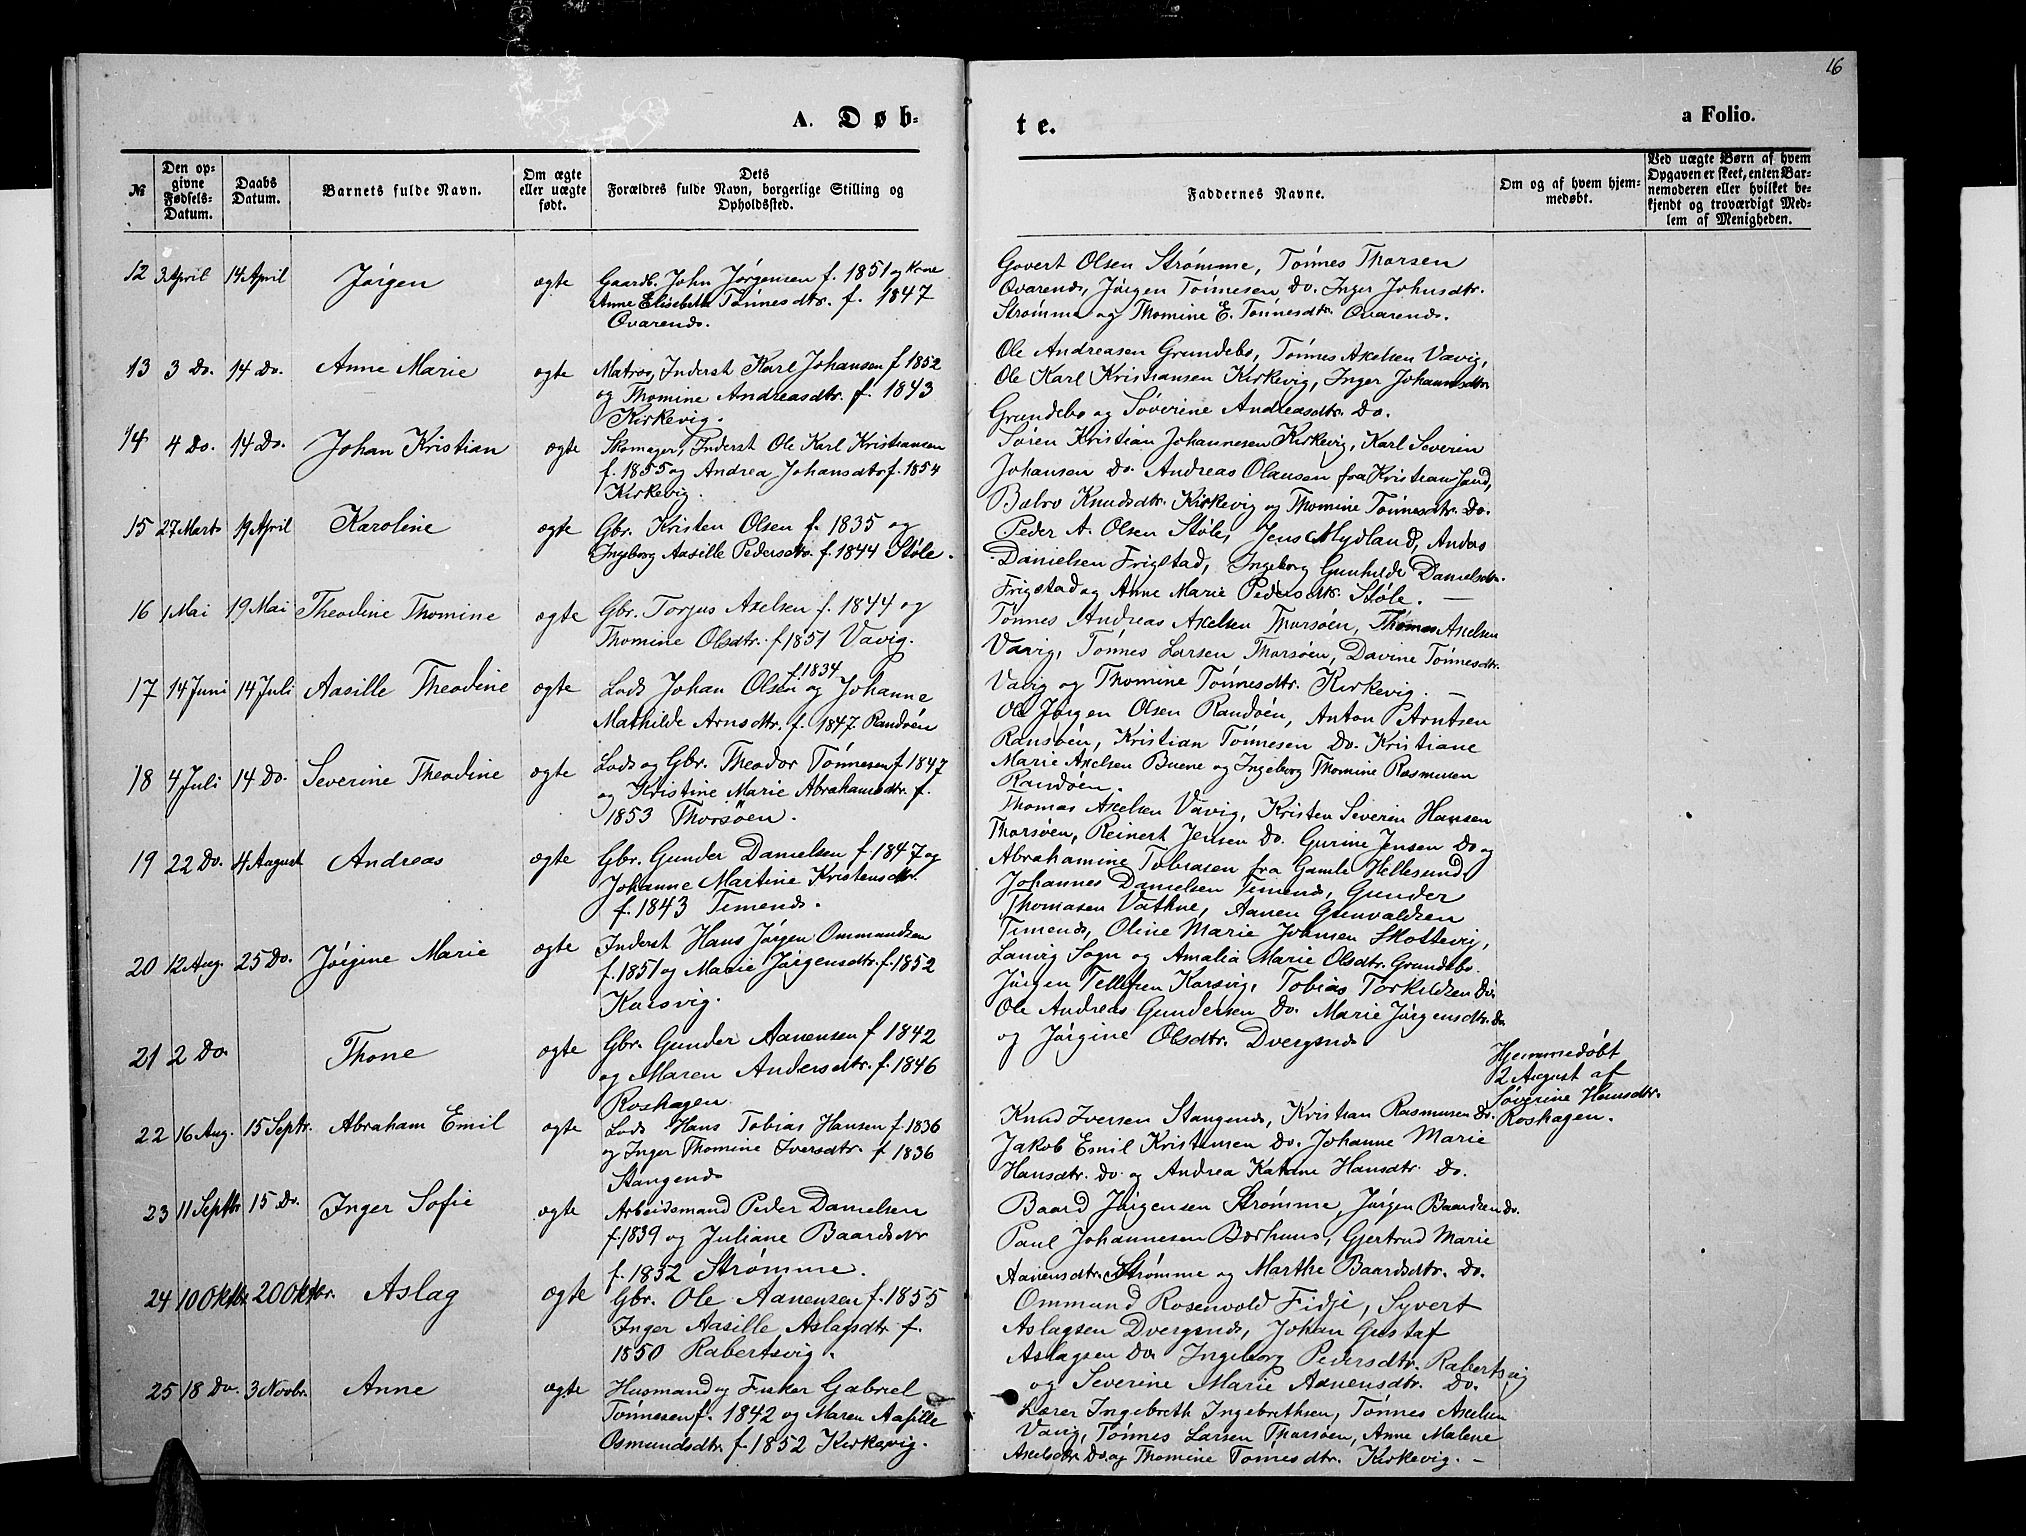 16
A. Døb-
te.
a Folio.
№
Den op-
givne
Fødsels-
Datum.
Daabs
Datum.
Barnets fulde Navn.
Om ægte
eller uægte
født.
Dets
Forældres fulde Navn, borgerlige Stilling og
Opholdssted.
Faddernes Navne.
Om og af hvem hjem-
medøbt.
Ved uægte Børn af hvem
Opgaven er skeet, enten Bar-
nemoderen eller hvilket be-
kjendt og troværdigt Med-
lem af Menigheden.
12 3 April 14 April Jørgen ægte Gaardb. John Jørgensen f. 1851 og Kone
Anne Elisebeth Tønnesdtr. f. 1847
Ovarends.
Govert Olsen Strømme, Tønnes Thorsen
Ovarends, Jørgen Tønnesen Do. Inger Johnsdtr.
Strømme og Thomine E. Tønnesdtr. Ovarends.
13 3 Do. 14 Do. Anne Marie ægte Matros, Inderst Karl Johansen f 1852
og Thomine Andreasdtr. f. 1843
Kirkevig.
Ole Andreasen Grundebø, Tønnes Axelsen Vavig,
Ole Karl Kristiansen Kirkevig, Inger Johannsdtr.
Grundebø og Søverine Andreasdtr. Do.
14 4 Do. 14 Do. Johan Kristian ægte Skomager, Inderst Ole Karl Kristiansen
f. 1855 og Andrea Johansdtr f. 1854
Kirkevig.
Søren Kristian Johannesen Kirkevig, Karl Severin
Johansen Do. Andreas Olausen fra Kristiansand,
Bælro Knudsdtr. Kirkevig og Thomine Tønnesdtr. Do.
15 27 Marts 19 April Karoline ægte Gbr. Kristen Olsen f. 1835 og
Ingeborg Aasille Pedersdtr. f. 1844 Støle.
Peder A. Olsen Støle, Jens Mydland, Anders
Danielsen Frigstad, Ingeborg Gunhilde Danielsdtr.
Frigstad og Anne Marie Pedersdtr. Støle. —
16 1 Mai 19 Mai Theodine Thomine ægte Gbr. Torjus Axelsen f. 1844 og
Thomine Olsdtr. f 1851 Vavig.
Tønnes Andreas Axelsen Thorsøen, Thomas Axelsen
Vavig, Tønnes Larsen Thorsøen, Davine Tønnesdtr.
Vavig og Thomine Tønnesdtr. Kirkevig. —
17 14 Juni 14 Juli Aasille Theodine ægte Lods Johan Olsen f 1834 og Johanne
Mathilde Arnsdtr. f. 1847. Randøen
Ole Jørgen Olsen Randøen, Anton Arntsen
Ransøen, Kristian Tønnesen Do. Kristiane
Marie Axelsen Buene og Ingeborg Thomine Rasmusen
Randøen.
18 4 Juli 14 Do. Severine Theodine ægte Lods og Gbr. Theodor Tønnesen f 1847
og Kristine Marie Abrahamsdtr. f.
1853 Thorsöen.
Thomas Axelsen Vavig, Kristen Severin Hansen
Thorsøen, Reinert Jensen Do. Gurine Jensen Do og
Abrahamine Tobiasen fra Gamle Hillesund
19 22 Do. 4 August Andreas ægte Gbr. Gunder Danielsen f. 1847 og
Johanne Martine Kristensdtr.
f. 1843 Timends.
Johannes Danielsen Timends, Gunder
Thomasen Vathne, Aanen Gunvaldsen
Timends, Oline Marie Johnsen Skottevig,
Lanvig Sogn og Amalia Marie Olsdtr. Grundebø.
20 12 Aug. 25 Do. Jørgine Marie ægte Inderst Hans Jørgen Ommundsen
f. 1851 og Marie Jørgensdtr. f. 1852
Karsvig.
Jørgen Tellefsen Karsvig, Tobias Torkildsen Do.
Ole Andreas Gundersen Do. Marie Jørgensdtr. Do.
og Jørgine Olsdtr. Dvergsnes
21 2 Do. Thone ægte Gbr. Gunder Aanensen f. 1842
og Maren Andersdtr. f. 1846
Roshagen.
Hjemmedøbt
2 August af
Søverine Hansdtr.
Roshagen.
22 16 Aug. 15 Septr. Abraham Emil ægte Lods Hans Tobias Hansen f. 1836
og Inger Thomine Iversdtr. f 1836
Stangends
Knud Iversen Stangends, Kristian Rasmusen Do.
Jakob Emil Kristensen Do. Johanne Marie
Hansdtr. Do. og Andrea Katrine Hansdtr. Do.
23 11 Septbr 15 Do. Inger Sofie ægte Arbeidsmand Peder Danielsen
f. 1839 og Juliane Baardsdtr
f. 1852 Strømme.
Baard Jørgensen Strømme, Jørgen Baardsen Do.
Paul Johannesen Bærhuus, Gjertrud Marie
Aanensdtr. Strømme og Marthe Baardsdtr. Do.
24 10 Oktbr. 20 Oktbr. Aslag ægte Gbr. Ole Aanensen f. 1855
Inger Aasille Aslagsdtr f.
1850 Rabertsvig.
Ommund Rosenvold Fidje, Syvert
Aslagsen Dvergsnds, Johan Gustaf
Aslagsen Do. Ingeborg Pedersdtr. Rabertsvig
og Severine Marie Aanensdtr. Do.
25 18 Do. 3 Novbr. Anne ægte Husmand og Fisker Gabriel
Tønnesen f. 1842 og Maren Aasille
Osmundsdtr. f. 1852 Kirkevig.
Lærer Ingebreth Ingebrethsen, Tønnes Axelsen
Vavig, Tønnes Larsen Thorsøen, Anne Malene
Axelsdtr. Do. og Thomine Tønnesdtr. Kirkevig. —